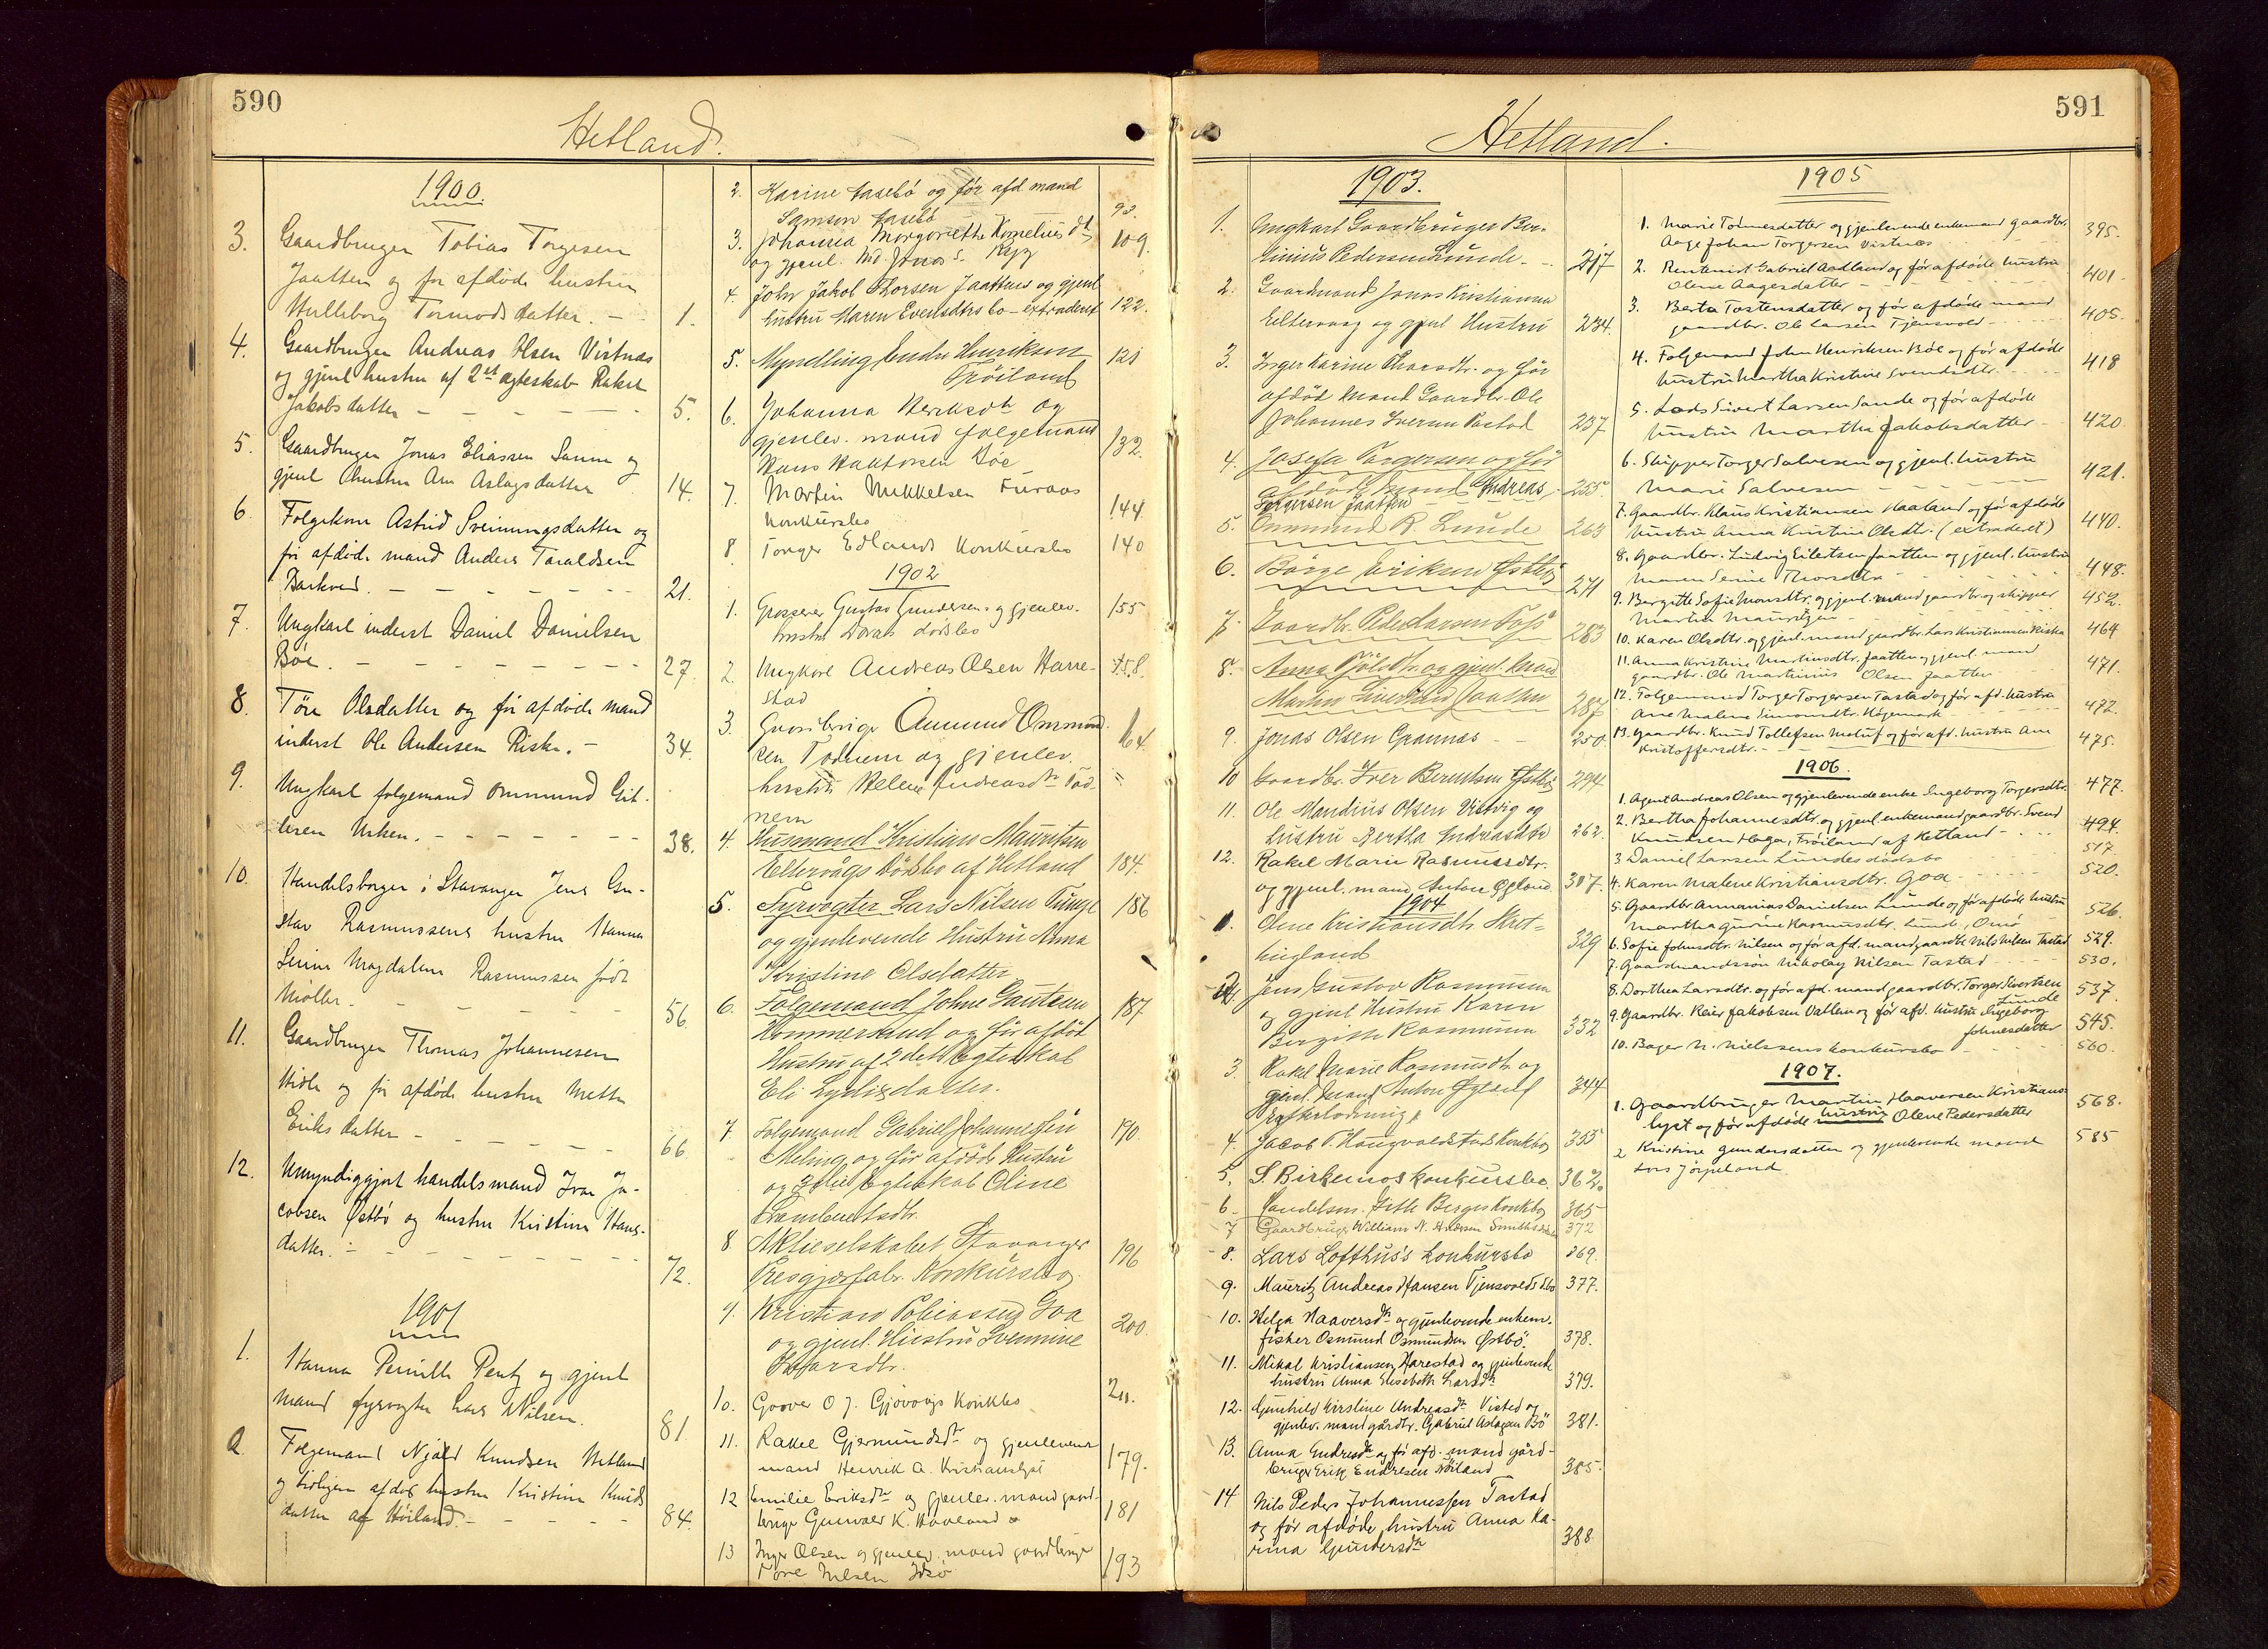 590
Hetland.
1900.
3. Gaardbruger Tobias Torgesen
Jaatten og før afdøde hustru
Hulleborg Tormodsdatter. - 1.
4. Gaardbruger Andreas Olsen Vistnæs
og gjenl hustru af 2det ægteskab Rakel
Jakobsdatter - - - - 5.
5. Gaardbruger Jonas Eliassen Sunne og
gjenl hustru Ane Aslagsdatter 14.
6. Folgekone Astrid Sveinungsdatter og
før afdøde mand Anders Taraldsen
Barkved. - - - - - 21.
7. Ungkarl inderst Daniel Danielsen
Bøe. - - - - - - 27.
8. Töre Olsdatter og før afdøde mand
inderst Ole Andersen Riske. - 34.
9. Ungkarl folgemand Ommund Git-
lesen Usken. - - - - - 38.
10. Handelsborger i Stavanger Jens Gu-
stav Rasmussens hustru Hanna
Serine Magdalene Rasmussen født
Møller. - - - - 56.
11. Gaardbruger Thomas Johannesen
Hidle og før afdøde hustru Mette
Eriksdatter - - - - 66.
12. Umyndiggjort handelsmand Ivar Ja-
cobsen Østbö og hustru Kristine Hans-
datter. - - - - - 72.
1901
1. Hanna Pernille Pentz og gjenl
mand fyrvogter Lars Nilsen. 81.
2. Folgemand Njäld Knudsen Hetland
og tidligere afdøde hustru Kristine Knuds
datter af Höiland. - - - - 84.
2. Karine Aasebö og før afd mand
Samson Aasebö 92.
3. Johanna Margarethe Kornelius dt
og gjenl. Md. Jonas S. Rygg 109.
4. John Jakob Thorsen Jaattens og gjenl
hustru Maren Evensdtrs bo - extraderet 122.
5. Myndling Endre Henriksen
Tröiland 121
6. Johanna Eriksdtr og
gjenlev. mand folgemand
Hans Haktorsen Böe 132.
7. Martin Mikkelsen Furaas
Konkursbo 144.
8 Torger Edlands Konkursbo 140
1902
1. Grosserer Gustav Gundersen og gjenlev.
hustru Doras dødsbo 155
2. Ungkarl Andreas Olsen Harre-
stad 158.
3. Gaardbruger Aamund Ommund
sen Todnem og gjenlev.
hustru Helene Andreasdtr Tod-
nem 164.
4. Husmand Kristian Mauritsen
Eltervågs Dödsbo af Hetland 184.
5. Fyrvogter Lars Nilsen Tunge
og gjenlevende Hustru Anna
Kristine Olsdatter 186
6. Folgemand Johne Gautesen
Hommersand og før afdöd
Hustru af 2det Ægteskab
Eli Lydiesdatter. 187
7. Folgemand Gabriel Johannessen
Meling og för afdöde Hustru
og 3die Ægteskab Oline
Trembertsdtr. 190.
8 Aktieselskabet Stavanger
Presgjærfabr. Konkursbo. 196
9. Kristian Tobiassen Goa
og gjenl. Hustru Svennine
Tharsdtr. 200.
10. Goover O J. Gjövaags Konkbo 211.
11. Rakel Gjermundsdtr og gjenlevende
mand Henrik A. Kristianslyst 179.
12 Emilie Eriksdtr og gjenlev. mand gaard-
bruger Gunvald K. Haaland 181
13 Inger Olsen og gjenlev. mand gaardbruger
Tore Nilsen Idsö 193
591
Hetland.
1903.
1. Ungkarl Gaardbruger Ber-
tinius Pedersen Lunde - - 217
2. Gaardmand Jonas Kristiansen
Eltervaag og gjenl Hustru 234.
3. Inger Karine Tharsdtr. og før
afdød Mand Gaardbr. Ole
Johannes Iversen Tastad 237
4. Josefa Torgersen og før
afdød Mand Andreas
Torgersen Jaatten 255.
5. Ommund R. Lunde 263
6. Börge Eriksen Østbö 271
7. Gaardbr. Peder Larsen Tasta 283
8. Anna Njöldsdtr. og gjenl. Mand
Martin Sivertsen Jaatten 287
9. Jonas Olsen Grannes - 250.
10 Gaardbr. Iver Berentsen Østbö 294
11. Ole Mandius Olsen Viervig og
hustru Bertha Andreasdtr 262.
12. Rakel Marie Rasmusdtr.
og gjenl. mand Anton Øglend 307.
1904
1. Olene Kristiansdtr Skret-
tingland 329
2. Jens Gustav Rasmussen
og gjenl Hustru Karen
Birgitte Rasmussen 332
3. Rakel Marie Rasmusdtr og
gjenl. Mand Anton Øglend
Efterlodning 344
4. Jacob T. Haugvaldstads Konkbo 355
5. S. Birkemos konkursbo. 362.
6 - Handelsm. Sitle Berges Konkbo 365
7 Gaardbruger William N. Andersen Smiths dødsbo 372
8. Lars Lofthus's konkursbo 369.
9. Mauritz Andreas Hansen Tjensvolds dbo 377.
10. Helga Haaversdtr og gjenlevende enkem.
fisker Osmund Osmundsen Østbö. 378.
11. Mikal Kristiansen Harestad og gjenlevende
hustru Anna Elisabeth Larsdtr 379.
12. Gunhild Kirstine Andreasdtr Visted og
gjenlev. mand gårdbr. Gabriel Aslagsen Bö 381.
13. Anna Endresdtr og før afd. mand gård-
bruger Erik Endresen Nöiland 385.
14 Nils Peder Johannessen Tastad
og før afdøde hustru Anna Ka-
rina Gundersdtr 388.
1905
1. Marie Tönnesdatter og gjenlevende enkemand gaardbr.
Aage Johan Torgersen Vistnæs 395.
2. Rentenist Gabriel Aadland og før afdøde hustru
Olene Aagesdatter - - - 401.
3. Berta Tostensdatter og før afdøde mand
gaardbr. Ole Larsen Tjensvold - - 405.
4. Folgemand John Henriksen Böe og før afdøde
hustru Martha Kristine Svendsdtr. - - 418
5. Lods Sivert Larsen Sande og før afdøde
hustru Martha Jakobsdatter - 420.
6. Skipper Torger Salvesen og gjenl. hustru
Marie Salvesen - - - 421.
7. Gaardbr. Klaus Kristiansen Haaland og før afdøde
hustru Anna Kristine Olsdtr. (extraderet) 440.
8. Gaardbr. Ludvig Eilertsen Jaatten og gjenl. hustru
Maren Serine Thorsdtr - - 448.
9. Bergitte Sofie Monsdtr. og gjenl. mand gaardbr og skipper
Martin Mauritzen - 452.
10. Karen Olsdtr. og gjenl. mand gaardbr. Lars Kristiansen Riska 464
11. Anna Kristine Martinsdtr. Jaatten og gjenl. mand
gaardbr. Ole Martinius Olsen Jaatten 471.
12. Folgemand Torger Torgersen Tastad og før afd. hustru
Ane Malene Simonsdtr. Högemark - - 472.
13. Gaardbr. Knud Tollefsen Meluf og før afd. hustru Ane
Kristoffersdtr. - - - 475.
1906.
1. Agent Andreas Olsen og gjenlevende enke Ingeborg Torgersdtr. 477.
2. Bertha Johannesdtr. og gjenl. enkemand gaardbr. Svend
Knudsen Haga, Fröiland af Hetland - - 494.
3 Daniel Larsen Lundes dødsbo 517.
4. Karen Malene Kristiansdtr. Goa - - - 520.
5. Gaardbr. Annanias Danielsen Lunde og før afdøde hustru
Martha Gurine Rasmusdtr. Lunde, Omö 526.
6. Sofie Johnsdtr. Nilsen og før afd. mand gaardbr Nils Nilsen Tastad 529.
7. Gaardmandssön Nikolay Nilsen Tastad - - - 530.
8. Dorthea Larsdtr. og før afd. mand gaardbr. Torger Sivertsen
Lunde 537.
9. Gaardbr. Reier Jakobsen Dallen og før afd. hustru Ingeborg
Johnesdatter 545.
10. Bager N. Nielssens konkursbo - - 560.
1907.
1. Gaardbruger Martin Haaversen Kristians-
lyst og før afdøde hustru Olene Pedersdatter 568.
2 Kristine Gundersdatter og gjenlevende mand
Lars Jörpeland 585